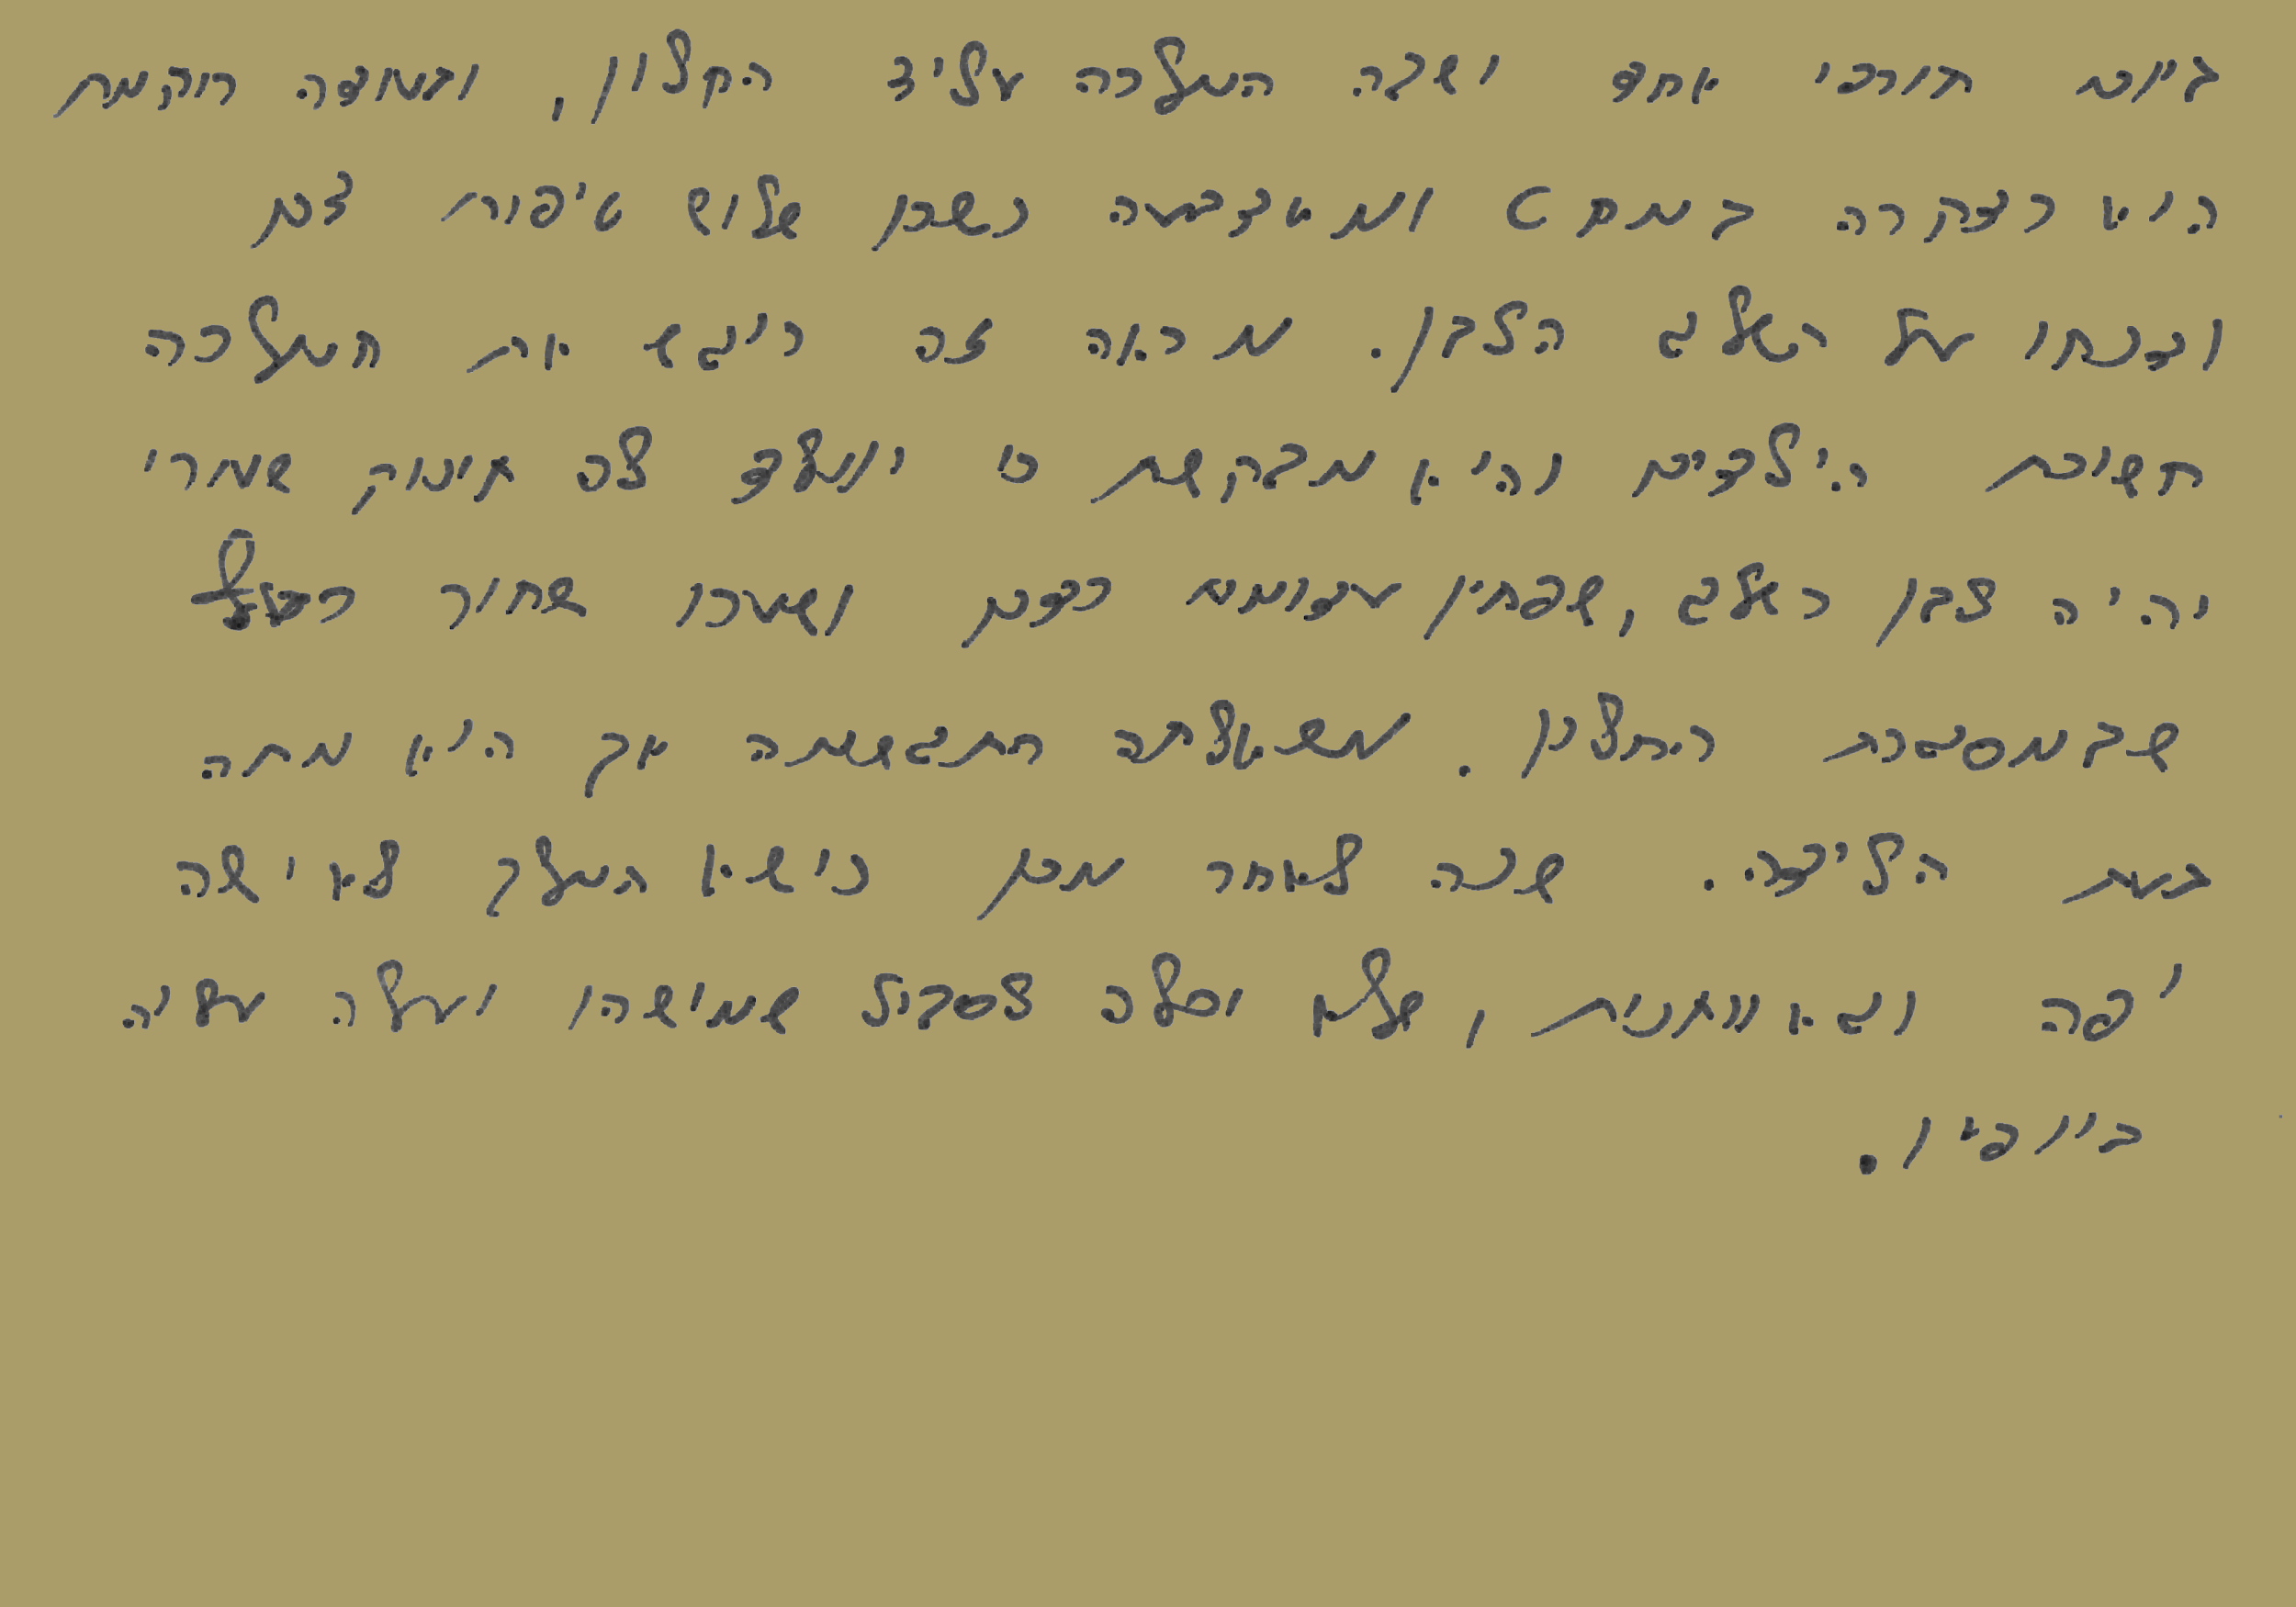 ביום חורפי אחד ישבה המלכה על יד החלון, ובעודה רוקמת
היא נדקרה במחט ומאצבעה נשרו שלוש טיפות דם
ונחתו על השלג הלבן. מראה זה ריגש את המלכה
חשוכת הילדים והיא מבקשת כי יוולד לה תינוק שעורו
יהיה לבן כשלג, שפתיו אדומות כדם ושערו שחור כעץ
שבמסגרת החלון. משאלתה התגשמה אך היא מתה
בעת הלידה. שנה לאחר מכן נישא המלך לאישה
יפה וגאוותנית, שלא יכלה לסבול שמישהו יעלה עליה
ביופיו.